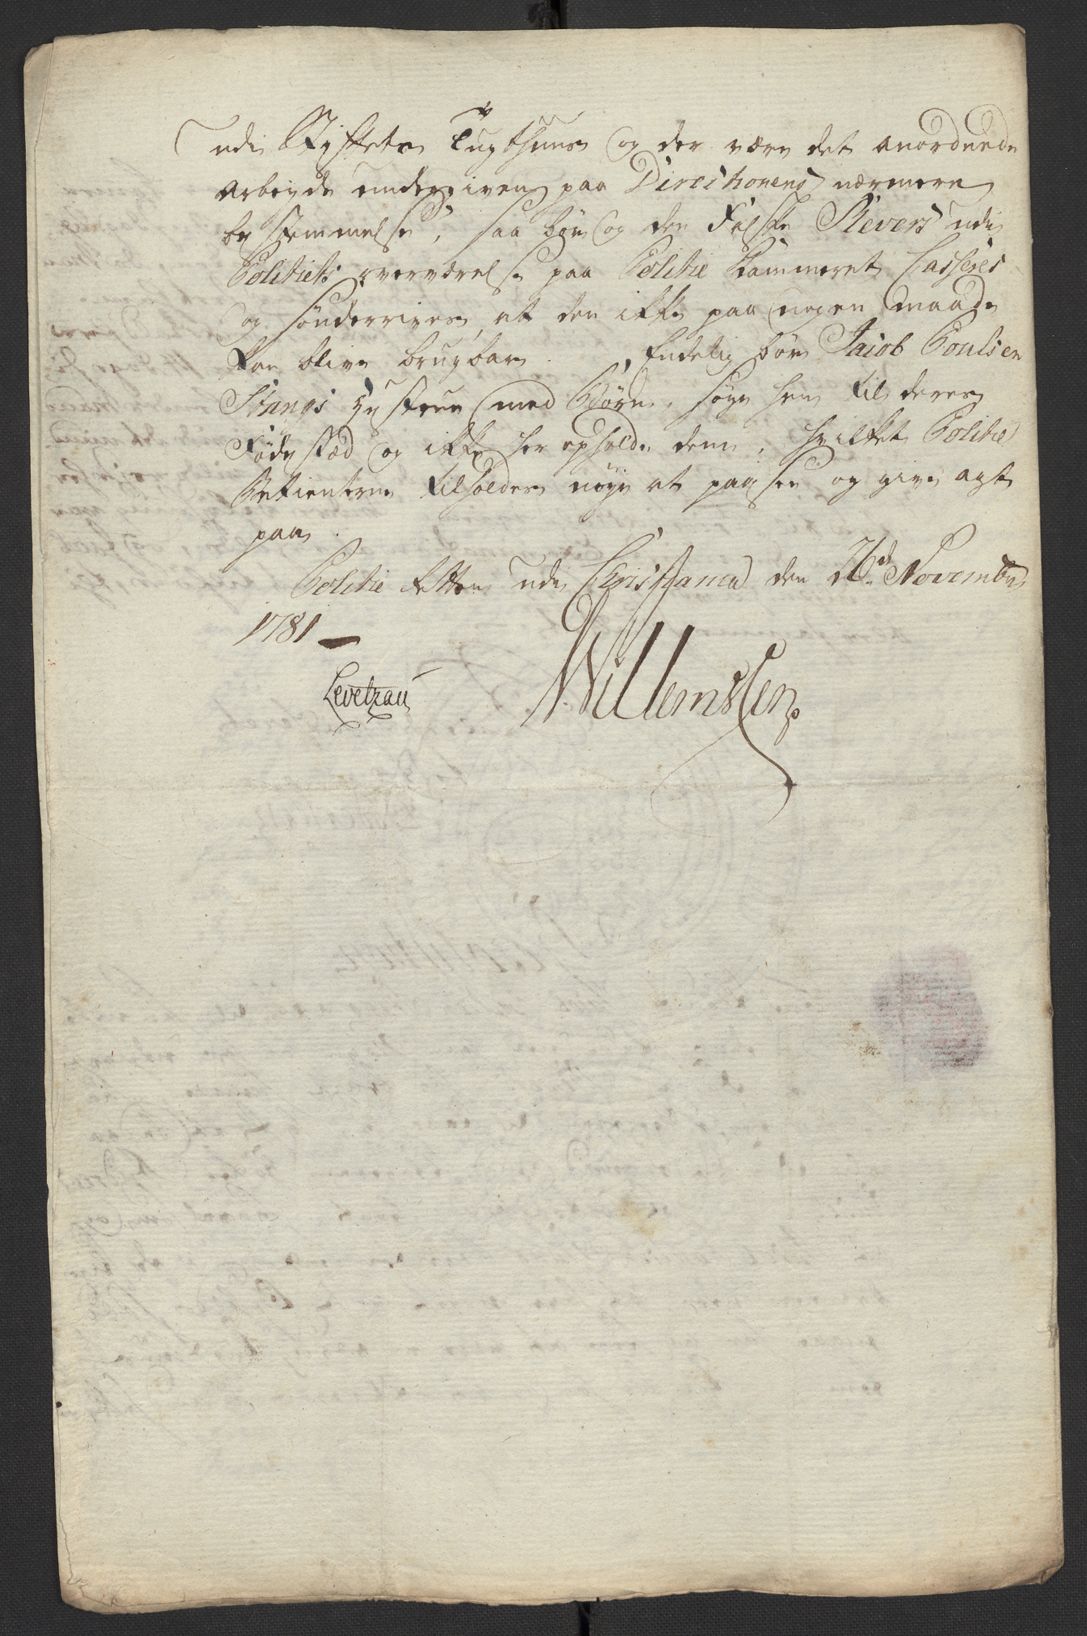 udi Stiftets Tugthuus og der være det anordnede
Arbeyde undergiven paa Directionens nærmere
bestemmelse, saa bør og den Falske Revers udi
Politiets overværelse paa Politie Kammeret Casseres
og sønderrives, at den ikke paa nogen maade
kan blive brugbar. Endelig bør Jacob Poulsen
Stangs Hustrue med Børn, søge hen til deres
Føde stæd og ikke her opholde dem, hvilket Politie
Betienterne tilholdes nøye at paasee og give agt
paa.
Politie Retten udi Christiania den 26d November
1781
Levetzau Willemssen